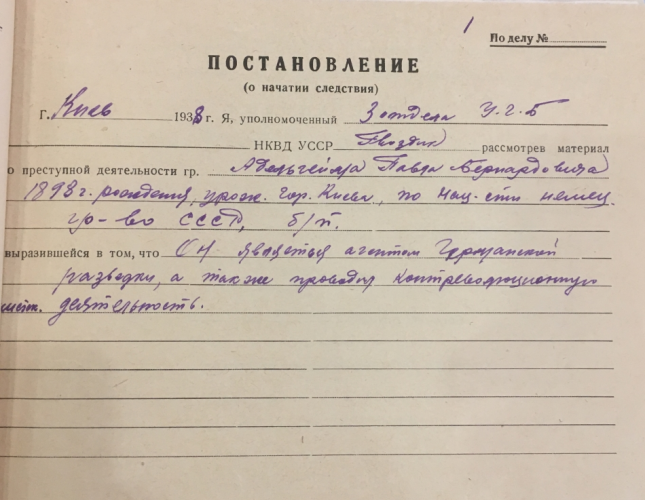 1
По делу №
ПОСТАНОВЛЕНИЕ
(о начатии следствия)
Г. Киев 1938 г. Я, уполномоченный 3 отдела У.Г.Б
НКВД УССР Гвоздик рассмотрев материал
о преступной деятельности гр. Адельгейма Павла Бернардовича
1898 г. рождения, урож. гор. Киева, по нац-сти немец.
гр-во СССР, б/п.
выразившейся в том, что Он является агентом Германской
разведки, а также проводил контрреволюционную
деятельность.